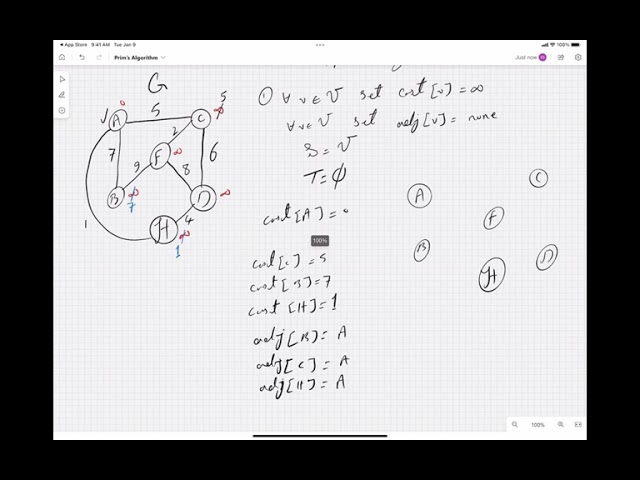 App Store 9:41 AM Tue Jan 9
Prim's Algorithm
Just now
G
① ∀ v ∈ V set cost[v] = ∞
∀ v ∈ V set adj[v] = none
S = V
T = ϕ
cost[A] = 0
100%
cost[C] = 5
cost[B] = 7
cost[H] = 1
adj[B] = A
adj[C] = A
adj[H] = A
√ A 0
5
C ∞ 5
7
2
F ∞
6
9
8
B ∞ 7
D ∞
4
H ∞ 1
1
A
C
F
B
H
D
100%